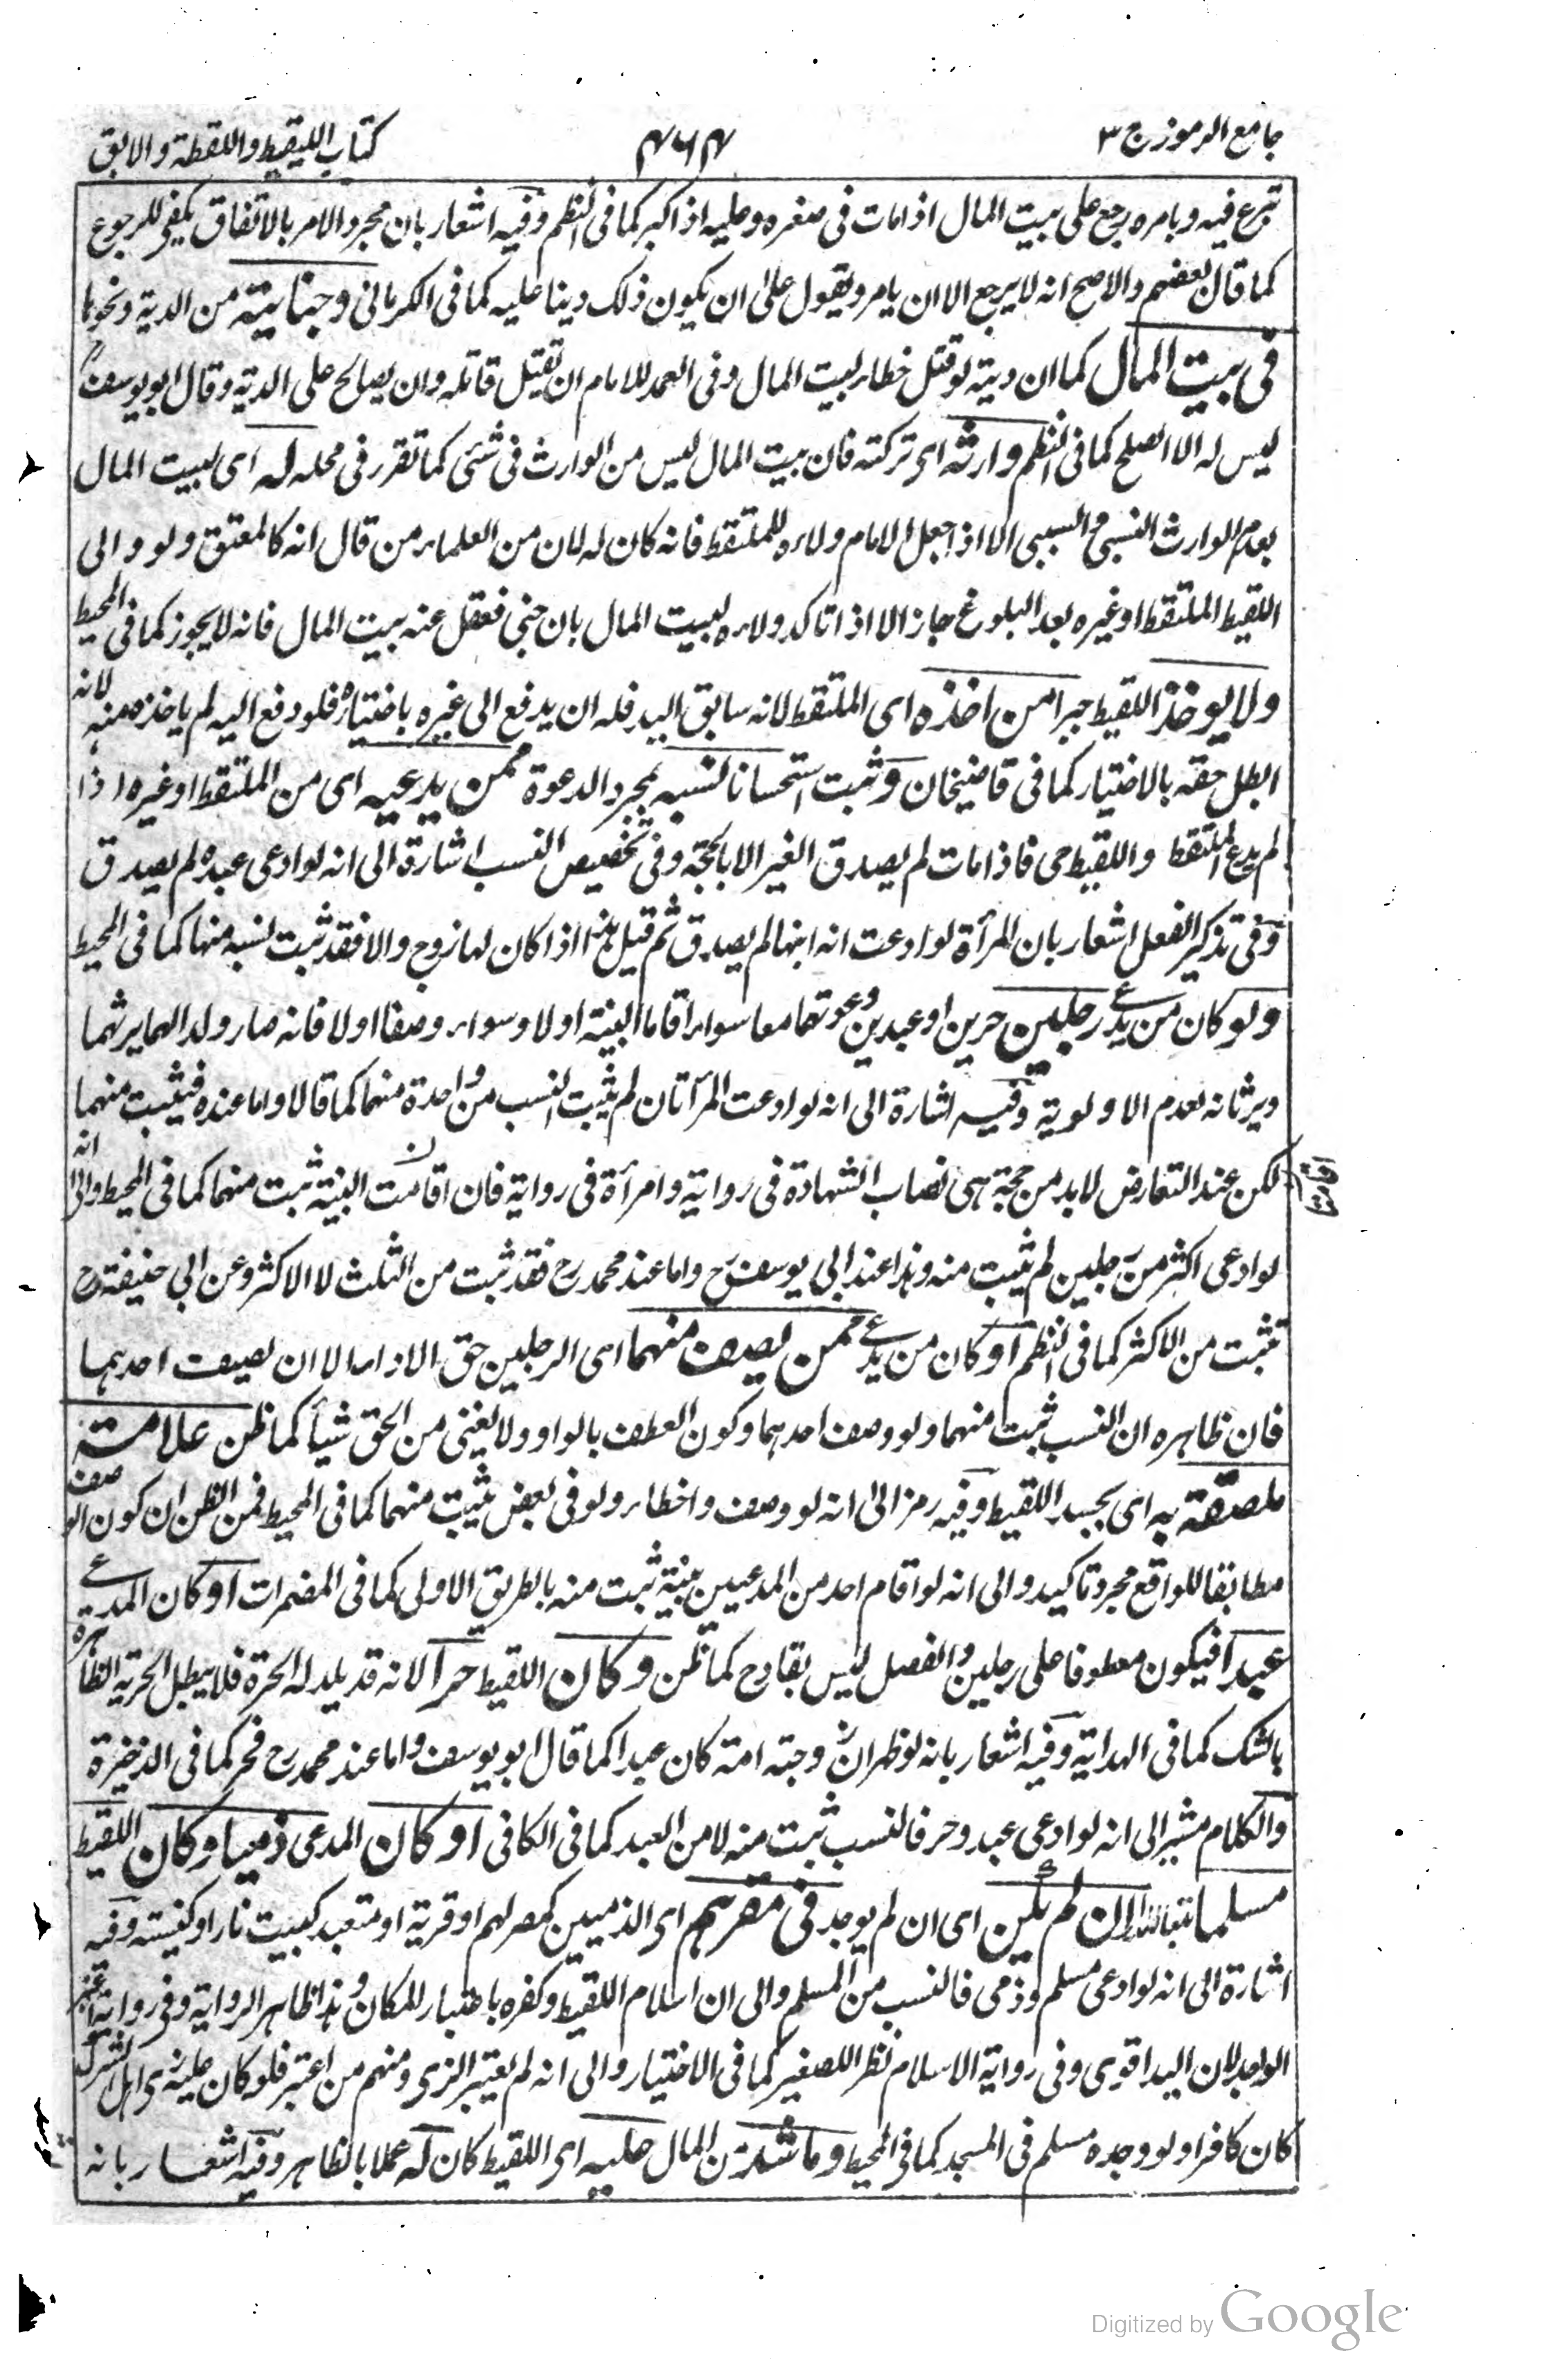 جامع الرموز ج ٣
٤٦٤
كتاب اللقيط واللقطة والابق
تبرع فيه وبامره رجع على بيت المال اذا مات فى صغره وعليه اذا كبر كما فى النظم وفيه اشعار بان مجرد الامر بالانفاق يكفى للرجوع
كما قال بعضهم والاصح انه لا يرجع الا ان يامر ويقول على ان يكون ذلك دينا عليه كما فى الكرمانى وجنايته من الدية ونحوها
فى بيت المال كما ان ديته لو قتل خطاء لبيت المال وفى العمد للامام ان يقتل قاتله وان يصالح على الدية وقال ابو يوسف رح
ليس له الا الصلح كما فى النظم وارثه اى تركته فان بيت المال ليس من الوارث فى شئى كما تقرر فى محله له اى لبيت المال
بعدم الوارث النسبى والسببى الا اذا جعل الامام ولاءه للملتقط فانه كان له لان من العلماء من قال انه كالمعتق ولو والى
اللقيط الملتقط او غيره بعد البلوغ جاز الا اذا تاكد ولاءه لبيت المال بان جنى فعقل عنه بيت المال فانه لا يجوز كما فى المحيط
ولا يوخذ اللقيط جبرا من اخذه اى الملتقط لانه سابق اليد فله ان يدفع الى غيره باختياره فلو دفع اليه لم ياخذه منه لانه
ابطل حقه بالاختيار كما فى قاضيخان وثبت استحسانا نسبه بمجرد الدعوة ممن يدعيه اى من الملتقط او غيره اذا
لم يدع الملتقط واللقيط حى فاذا مات لم يصدق الغير الا بالحجة وفى تخصيص النسب اشارة الى انه لو ادعى عبده لم يصدق
وفى تذكير الفعل اشعار بان المرأة لو ادعت انه ابنها لم يصدق ثم قيل هذا اذا كان لها زوج والا فقد ثبت نسبه منها كما فى المحيط
ولو كان من يدعى رجلين حرين او عبدين دعوتهما معا سواء اقاما البينة اولا وسواء وصفا اولا فانه صار ولد الهما يرثهما
ويرثانه لعدم الاولوية وفيه اشارة الى انه لو ادعت المرأتان لم يثبت النسب من واحدة منهما كما قالا واما عنده فيثبت منهما
لكن عند التعارض لابد من حجة هى نصاب الشهادة فى رواية وامرأة فى رواية فان اقامت البينة ثبت منهما كما فى المحيط والى انه
لو ادعى اكثر من رجلين لم يثبت منه وهذا عند ابى يوسف رح واما عند محمد رح فقد ثبت من الثلث لا الاكثر وعن ابى حنيفة رح
يثبت من الاكثر كما فى النظم او كان من يدعى ممن يصف منهما اى الرجلين حق الاداء الا ان يصف احدهما
فان ظاهره ان النسب ثبت منهما ولو وصف احدهما وكون العطف بالواو ولا يغنى من الحق شيأ كما ظن علامة
ملصقة به اى بجسد اللقيط وفيه رمز الى انه لو وصف واخطاء ولو فى بعض يثبت منهما كما فى المحيط فمن الظن ان كون الوصف
مطابقا للواقع مجرد تاكيد والى انه لو اقام احد من المدعيين بينة ثبت منه بالطريق الاولى كما فى المضمرات او كان المدعى
عبدا فيكون معطوفا على رجلين والفصل ليس بقادح كما ظن وكان اللقيط حرا لانه قد يلد له الحرة فلا يبطل الحرية الظاهرة
بالشك كما فى الهداية وفيه اشعار بانه لو ظهر ان زوجته امة كان عبدا كما قال ابو يوسف واما عند محمد رح فحر كما فى الذخيرة
والكلام مشير الى انه لو ادعى عبد وحر فالنسب ثبت منه لا من العبد كما فى الكافى او كان المدعى ذميا وكان اللقيط
مسلما ان لم يكن اى ان لم يوجد فى مقرهم اى الذميين كمصر لهم او قرية او متعبد كبيت نار او كنيسة وفيه
اشارة الى انه لو ادعى مسلم وذمى فالنسب من المسلم والى ان اسلام اللقيط وكفره باعتبار المكان وهذا ظاهر الرواية وفى رواية اعتبر
الواجد لان اليد اقوى وفى رواية الاسلام نظرا للصغير كما فى الاختيار والى انه لم يعتبر الزى ومنهم من اعتبر فلو كان عليه زى اهل الشرك
كان كافرا ولو وجده مسلم فى المسجد كما فى المحيط وما شد من المال عليه اى اللقيط كان له عملا بالظاهر وفيه اشعار بانه
Digitized by Google